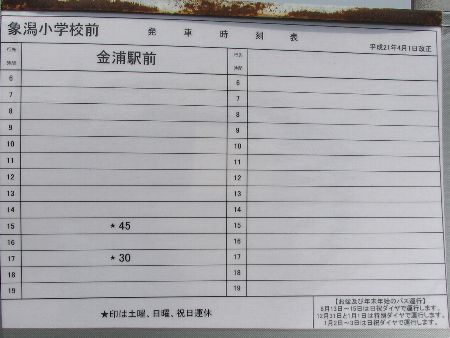 象潟小学校前 発車時刻表
平成21年4月1日改正
行先 金浦駅前 行先
時間 時間
6 6
7 7
8 8
9 9
10 10
11 11
12 12
13 13
14 14
15 ★45 15
16 16
17 ★30 17
18 18
19 19
★印は土曜、日曜、祝日運休
【お盆及び年末年始のバス運行】
8月13日～15日は日祝ダイヤで運行します。
12月31日と1月1日は特別ダイヤで運行します。
1月2日～3日は日祝ダイヤで運行します。